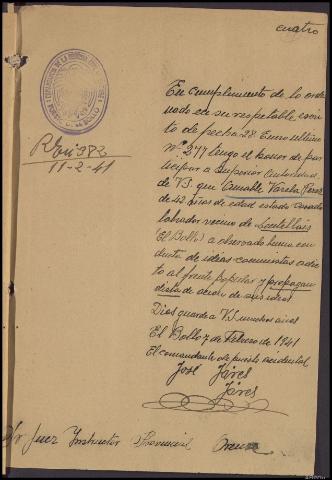 cuatro
En cumplimento de lo orde
nado en su respetable escri
to de fecha 28 Enero ultimo
Nº 277 tengo el honor de par
ticipar a Superior Autoridad
de V.S. que Amable Varela Perez
de 42 años de edad estado casado
labrador vecino de
(El Bollo) a observado buena con
ducta de ideas comunistas adic
to al frente popular y propagan
dista de acion de sus ideas
Dios guarde a V.S. muchos años
El Bollo 7 de Febrero de 1941
El comandante de puesto acidental
José Járes
Járes
R Em 982
11-2-41
Sr Juez Instructor Provincial Orense